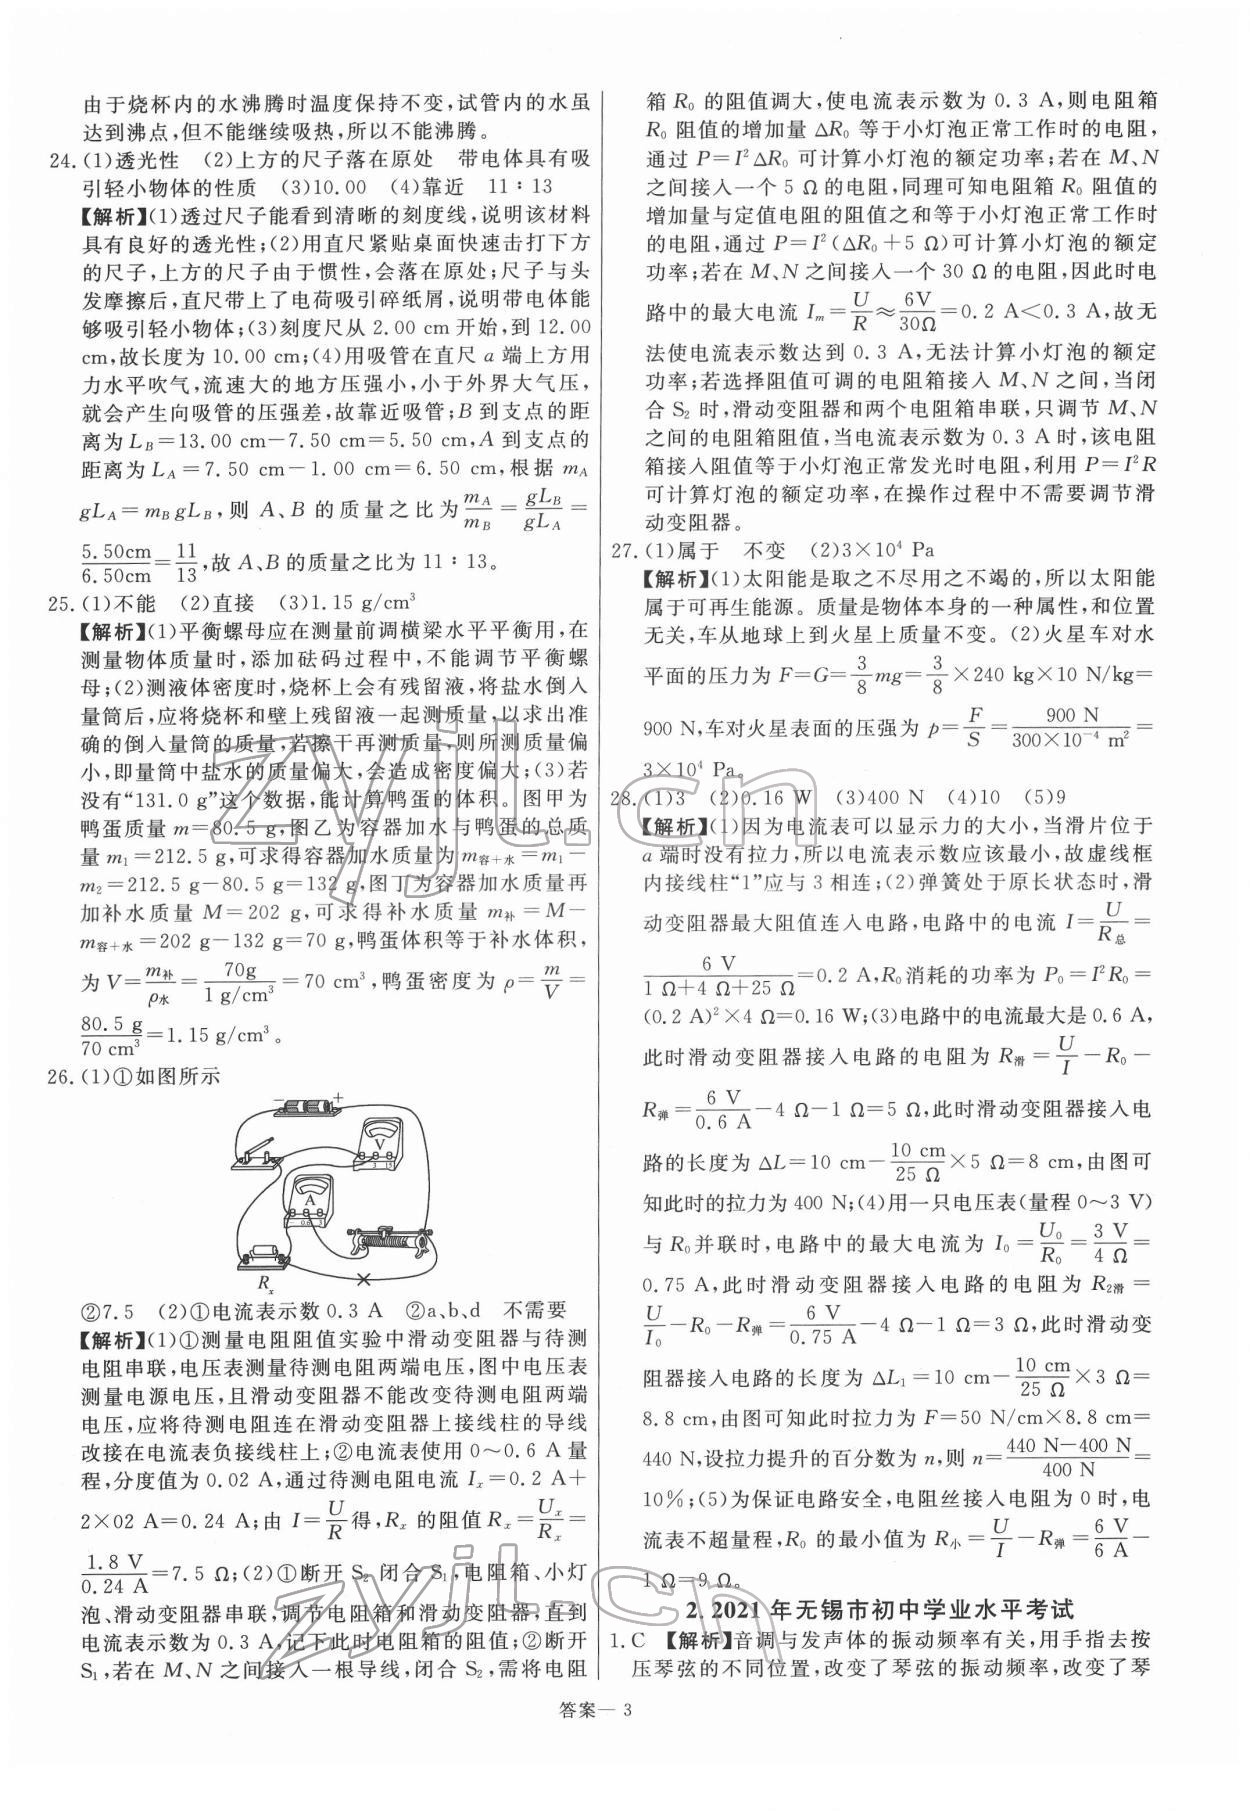 由于烧杯内的水沸腾时温度保持不变,试管内的水虽
达到沸点,但不能继续吸热,所以不能沸腾。
24.(1)透光性 (2)上方的尺子落在原处 带电体具有吸
引轻小物体的性质 (3)10.00 (4)靠近 11∶13
【解析】(1)透过尺子能看到清晰的刻度线,说明该材料
具有良好的透光性;(2)用直尺紧贴桌面快速击打下方
的尺子,上方的尺子由于惯性,会落在原处;尺子与头
发摩擦后,直尺带上了电荷吸引碎纸屑,说明带电体能
够吸引轻小物体;(3)刻度尺从 2.00 cm 开始,到 12.00
cm,故长度为 10.00 cm;(4)用吸管在直尺 a 端上方用
力水平吹气,流速大的地方压强小,小于外界大气压,
就会产生向吸管的压强差,故靠近吸管;B 到支点的距
离为 L_B=13.00 cm−7.50 cm=5.50 cm,A 到支点的
距离为 L_A=7.50 cm−1.00 cm=6.50 cm,根据 m_A
gL_A=m_B gL_B,则 A、B 的质量之比为 m_A/m_B=gL_B/gL_A=
5.50cm/6.50cm=11/13,故 A、B 的质量之比为 11∶13。
25.(1)不能 (2)直接 (3)1.15 g/cm³
【解析】(1)平衡螺母应在测量前调横梁水平平衡用,在
测量物体质量时,添加砝码过程中,不能调节平衡螺
母;(2)测液体密度时,烧杯上会有残留液,将盐水倒入
量筒后,应将烧杯和壁上残留液一起测质量,以求出准
确的倒入量筒的质量,若擦干再测质量,则所测质量偏
小,即量筒中盐水的质量偏大,会造成密度偏大;(3)若
没有“131.0 g”这个数据,能计算鸭蛋的体积。图甲为
鸭蛋质量 m=80.5 g,图乙为容器加水与鸭蛋的总质
量 m₁=212.5 g,可求得容器加水质量为 m容+水=m₁−
m₂=212.5 g−80.5 g=132 g,图丁为容器加水质量再
加补水质量 M=202 g,可求得补水质量 m补=M−
m容+水=202 g−132 g=70 g,鸭蛋体积等于补水体积,
为 V=m补/ρ水=70g/1 g/cm³=70 cm³,鸭蛋密度为 ρ=m/V=
80.5 g/70 cm³=1.15 g/cm³。
26.(1)①如图所示
− +
V
3 15
A
0.6 3
Rₓ
②7.5 (2)①电流表示数 0.3 A ②a、b、d 不需要
【解析】(1)①测量电阻阻值实验中滑动变阻器与待测
电阻串联,电压表测量待测电阻两端电压,图中电压表
测量电源电压,且滑动变阻器不能改变待测电阻两端
电压,应将待测电阻连在滑动变阻器上接线柱的导线
改接在电流表负接线柱上;②电流表使用 0～0.6 A 量
程,分度值为 0.02 A,通过待测电阻电流 Iₓ=0.2 A+
2×02 A=0.24 A;由 I=U/R得,Rₓ 的阻值 Rₓ=Uₓ/Rₓ=
1.8 V/0.24 A=7.5 Ω;(2)①断开 S₂ 闭合 S₁,电阻箱、小灯
泡、滑动变阻器串联,调节电阻箱和滑动变阻器,直到
电流表示数为 0.3 A,记下此时电阻箱的阻值;②断开
S₁,若在 M、N 之间接入一根导线,闭合 S₂,需将电阻
箱 R₀ 的阻值调大,使电流表示数为 0.3 A,则电阻箱
R₀ 阻值的增加量 ΔR₀ 等于小灯泡正常工作时的电阻,
通过 P=I²ΔR₀ 可计算小灯泡的额定功率;若在 M、N
之间接入一个 5 Ω 的电阻,同理可知电阻箱 R₀ 阻值的
增加量与定值电阻的阻值之和等于小灯泡正常工作时
的电阻,通过 P=I²(ΔR₀+5 Ω)可计算小灯泡的额定
功率;若在 M、N 之间接入一个 30 Ω 的电阻,因此时电
路中的最大电流 Iₘ=U/R≈6V/30Ω=0.2 A<0.3 A,故无
法使电流表示数达到 0.3 A,无法计算小灯泡的额定
功率;若选择阻值可调的电阻箱接入 M、N 之间,当闭
合 S₂ 时,滑动变阻器和两个电阻箱串联,只调节 M、N
之间的电阻箱阻值,当电流表示数为 0.3 A 时,该电阻
箱接入阻值等于小灯泡正常发光时电阻,利用 P=I²R
可计算灯泡的额定功率,在操作过程中不需要调节滑
动变阻器。
27.(1)属于 不变 (2)3×10⁴ Pa
【解析】(1)太阳能是取之不尽用之不竭的,所以太阳能
属于可再生能源。质量是物体本身的一种属性,和位置
无关,车从地球上到火星上质量不变。(2)火星车对水
平面的压力为 F=G=3/8mg=3/8×240 kg×10 N/kg=
900 N,车对火星表面的压强为 p=F/S=900 N/300×10⁻⁴ m²=
3×10⁴ Pa。
28.(1)3 (2)0.16 W (3)400 N (4)10 (5)9
【解析】(1)因为电流表可以显示力的大小,当滑片位于
a 端时没有拉力,所以电流表示数应该最小,故虚线框
内接线柱“1”应与 3 相连;(2)弹簧处于原长状态时,滑
动变阻器最大阻值连入电路,电路中的电流 I=U/R总=
6 V/1 Ω+4 Ω+25 Ω=0.2 A,R₀消耗的功率为 P₀=I²R₀=
(0.2 A)²×4 Ω=0.16 W;(3)电路中的电流最大是 0.6 A,
此时滑动变阻器接入电路的电阻为 R滑=U/I−R₀−
R弹=6 V/0.6 A−4 Ω−1 Ω=5 Ω,此时滑动变阻器接入电
路的长度为 ΔL=10 cm−10 cm/25 Ω×5 Ω=8 cm,由图可
知此时的拉力为 400 N;(4)用一只电压表(量程 0～3 V)
与 R₀并联时,电路中的最大电流为 I₀=U₀/R₀=3 V/4 Ω=
0.75 A,此时滑动变阻器接入电路的电阻为 R₂滑=
U/I₀−R₀−R弹=6 V/0.75 A−4 Ω−1 Ω=3 Ω,此时滑动变
阻器接入电路的长度为 ΔL₁=10 cm−10 cm/25 Ω×3 Ω=
8.8 cm,由图可知此时拉力为 F=50 N/cm×8.8 cm=
440 N,设拉力提升的百分数为 n,则 n=440 N−400 N/400 N=
10%;(5)为保证电路安全,电阻丝接入电阻为 0 时,电
流表不超量程,R₀ 的最小值为 R小=U/I−R弹=6 V/6 A−
1 Ω=9 Ω。
2. 2021 年无锡市初中学业水平考试
1.C 【解析】音调与发声体的振动频率有关,用手指去按
压琴弦的不同位置,改变了琴弦的振动频率,改变了琴
答案— 3
zyjl.cn
zyjl.cn